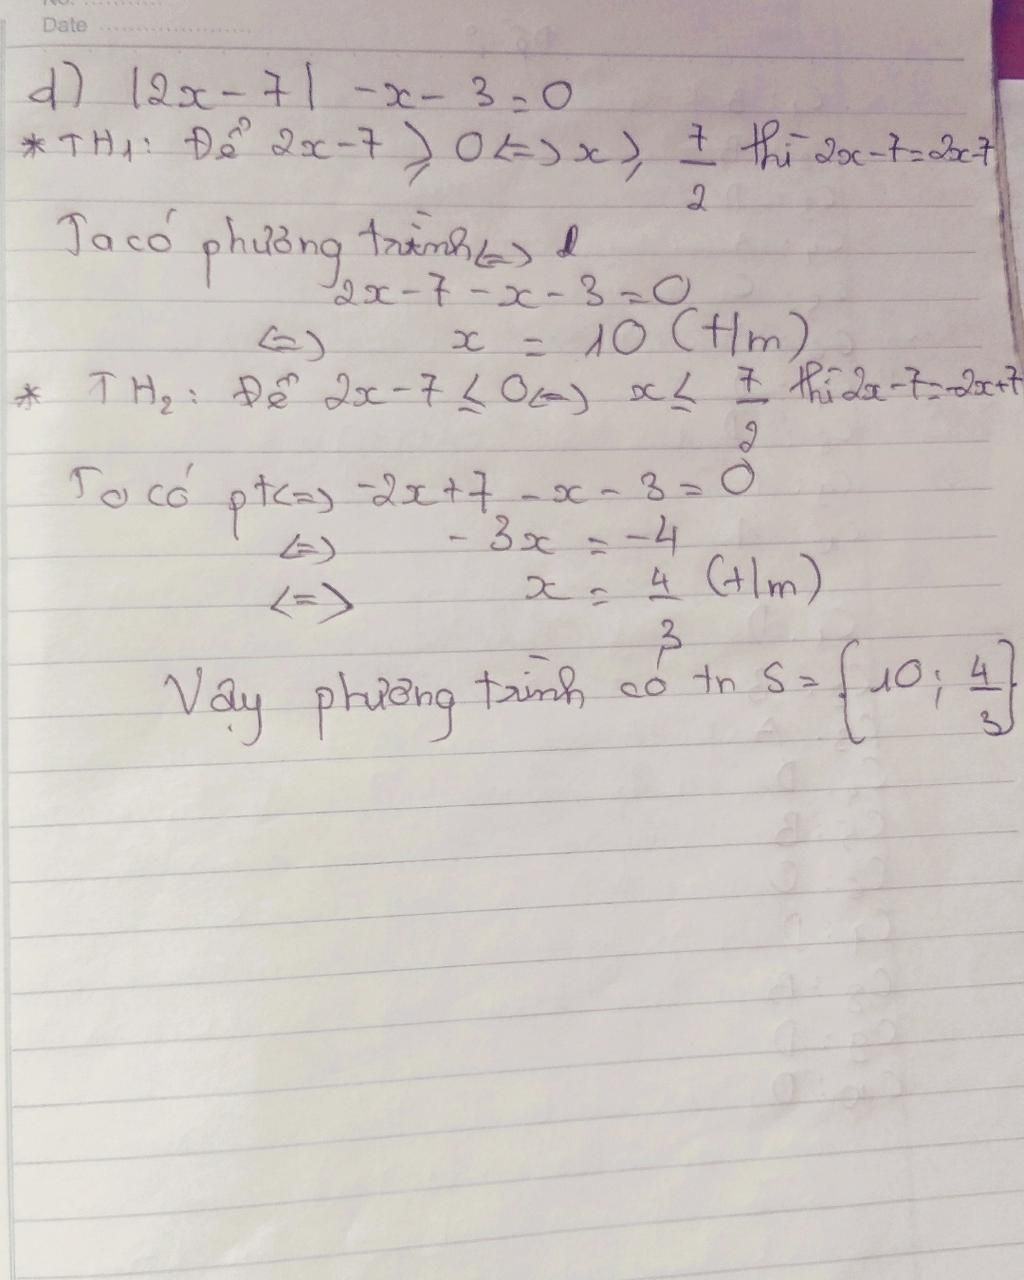 No. ............
Date ......................
d) |2x - 7| - x - 3 = 0
* TH1: Để 2x - 7 ≥ 0 <=> x ≥ 7/2 thì 2x - 7 = 2x - 7
Ta có phương trình <=>
2x - 7 - x - 3 = 0
<=> x = 10 (t/m)
* TH2: Để 2x - 7 ≤ 0 <=> x ≤ 7/2 thì 2x - 7 = -2x + 7
Ta có pt <=> -2x + 7 - x - 3 = 0
<=> - 3x = -4
<=> x = 4/3 (t/m)
Vậy phương trình có tn S = {10; 4/3}